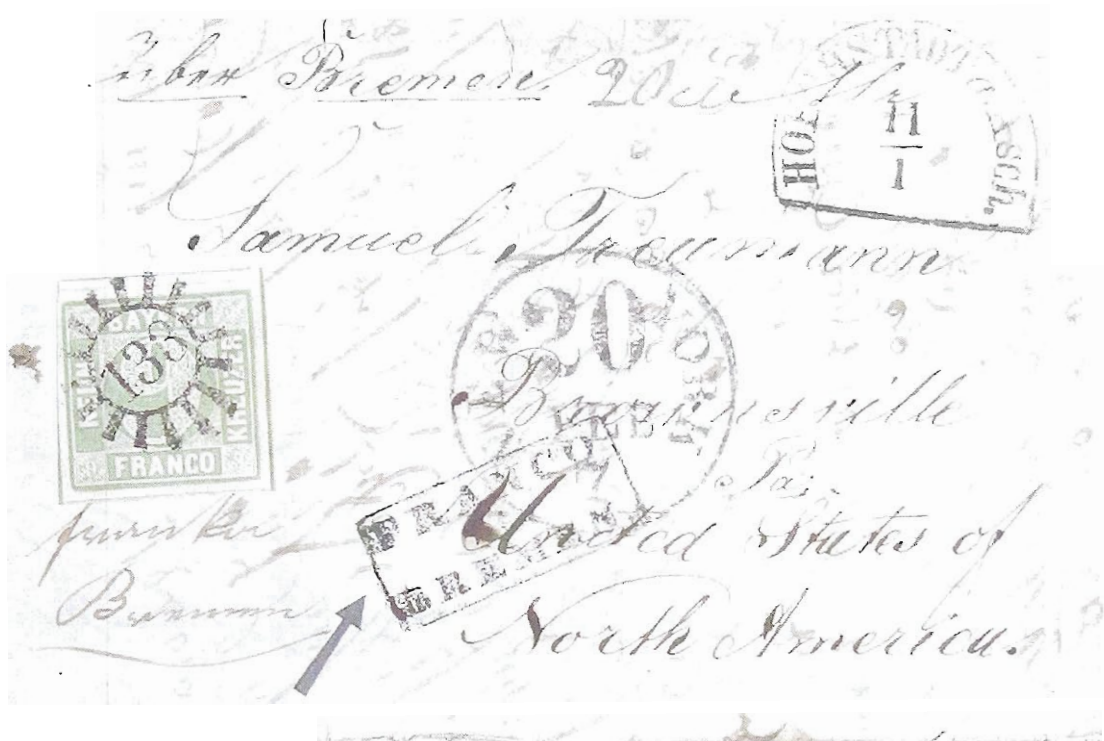 über Bremen.
HO
sch.
11
1
Samuel Treumann
BAYERN
KREUZER
FRANCO
133
NEW YORK
20
FEB
Brownsville
Pa.
FRANCO
BREMEN
United States of
North America.
franko
Bremen